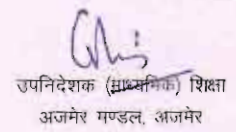 उपनिदेशक (माध्यमिक) शिक्षा
अजमेर मण्डल, अजमेर